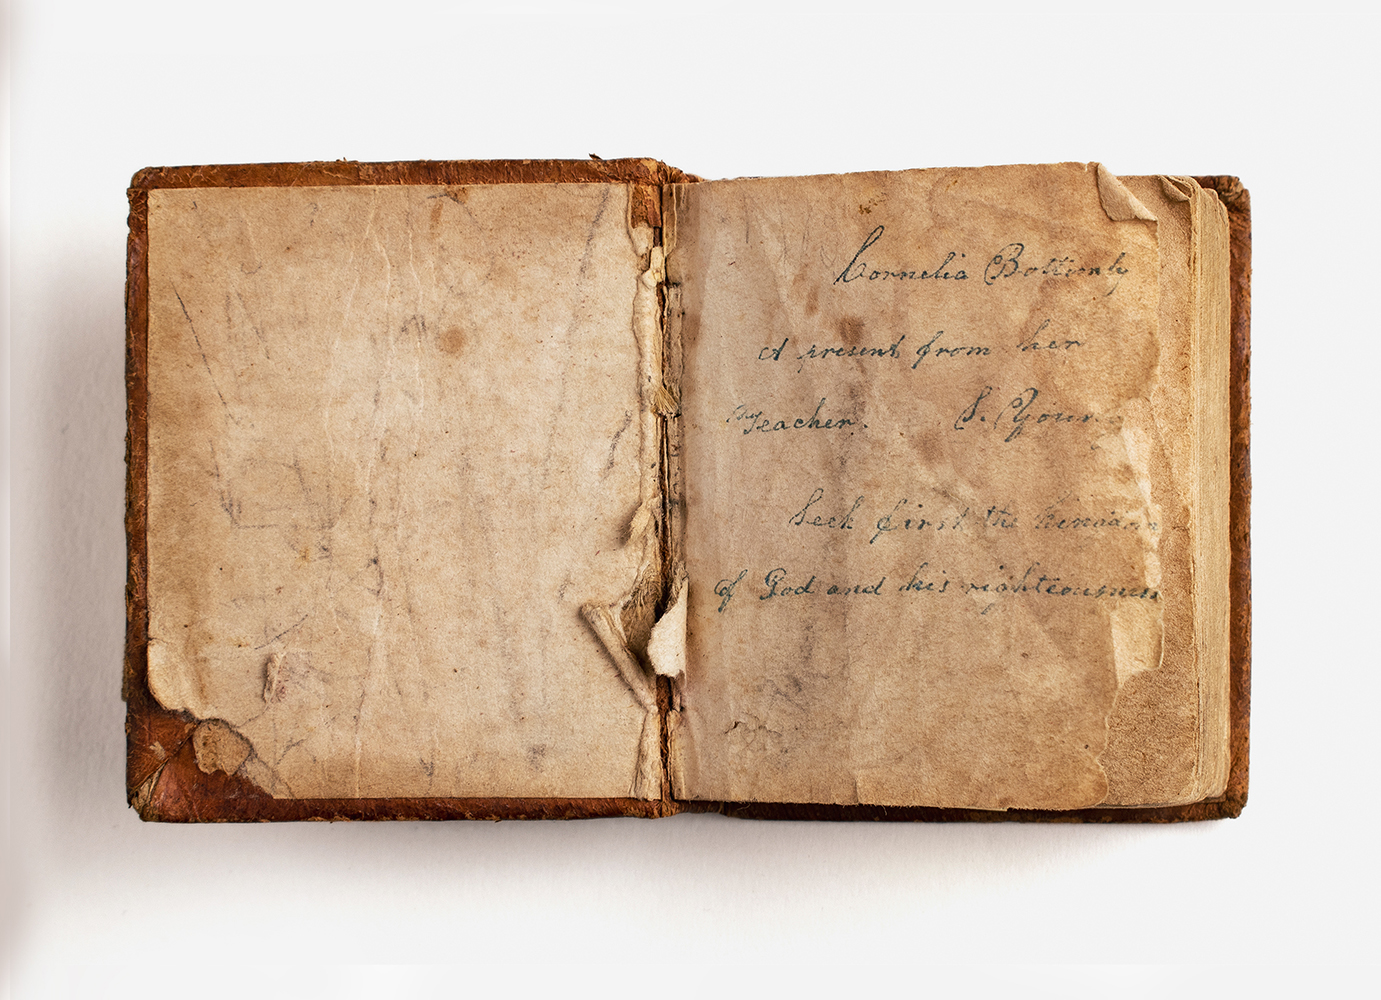 Cornelia Bottomly
A present from her
Teacher. S. Young
Seek first the kingdom
of God and his righteousness